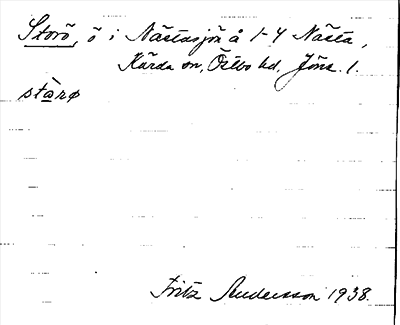 Storö, ö i Nästasjön å 1-4 Nästa,
Kärda sn, Östbo hd. Jöns. l.
stàrø
Fritz Andersson 1938.